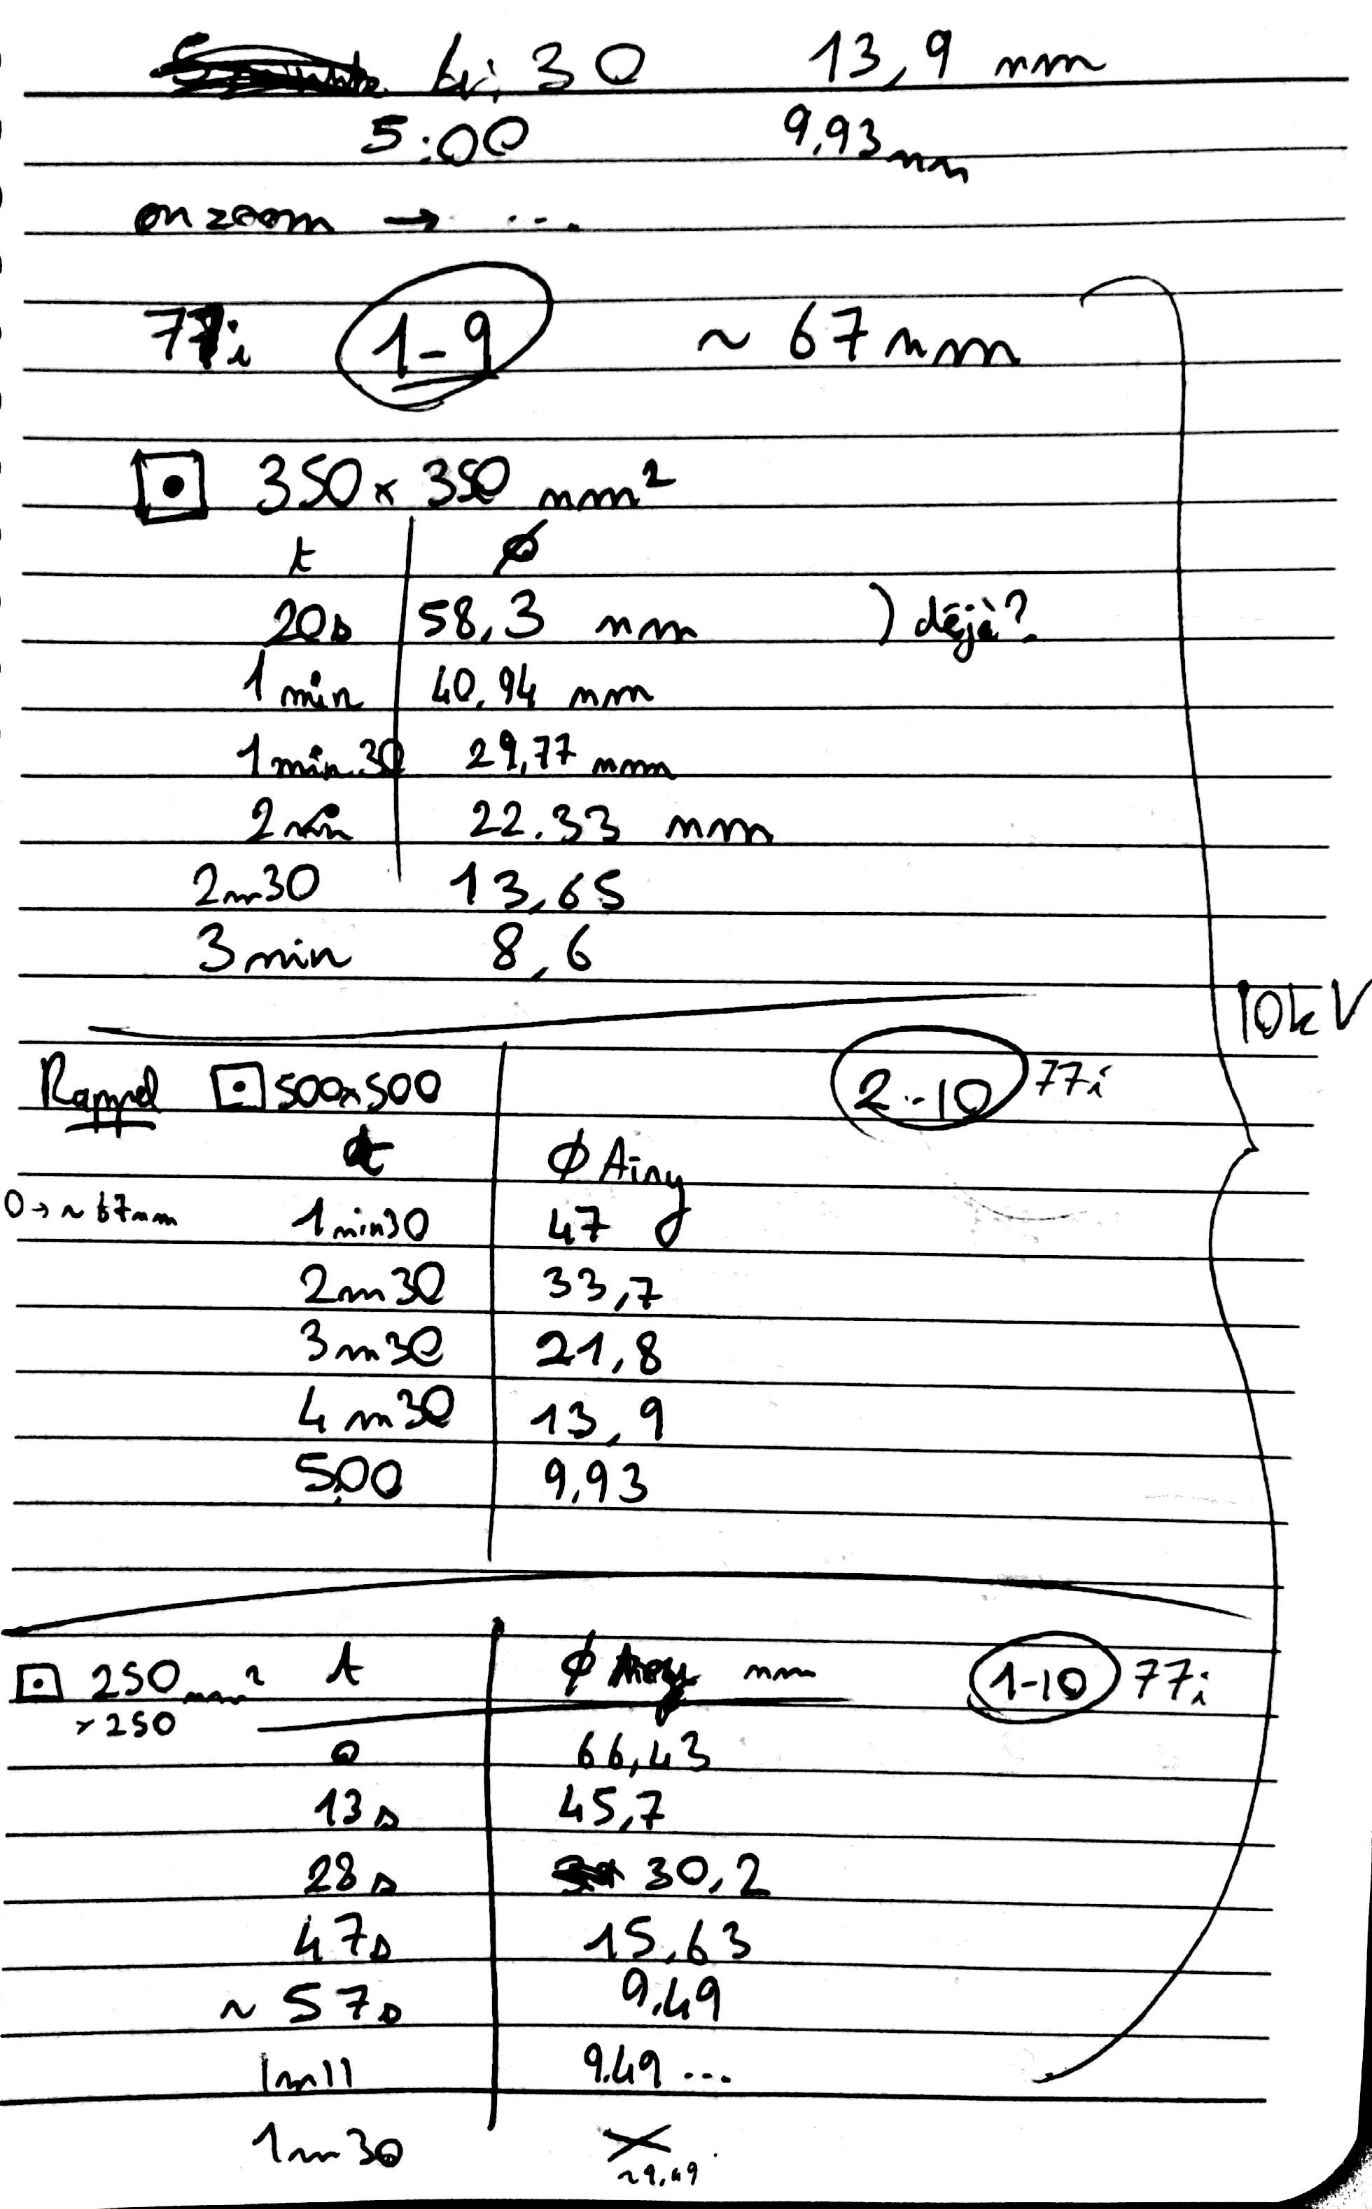 4:30 13,9 nm
5:00 9,93 nm
on zoom → ...
77i 1-9 ~ 67 nm
350 x 350 nm²
t ϕ
20s 58,3 nm ) déjà?
1 min 40,94 nm
1 min 30 29,77 nm
2 min 22.33 nm
2m30 13,65
3 min 8,6
10kV
Rappel 500x500 2-10 77i
t ϕ Airy
0 → ~ 67nm 1min30 47
2m30 33,7
3m30 21,8
4m30 13,9
5,00 9,93
250 nm² t ϕ nm 1-10 77i
x 250
0 66,43
13s 45,7
28s 30,2
47s 15,63
~ 57s 9,49
1m11 9.49 ...
1m30 ×
~9,49